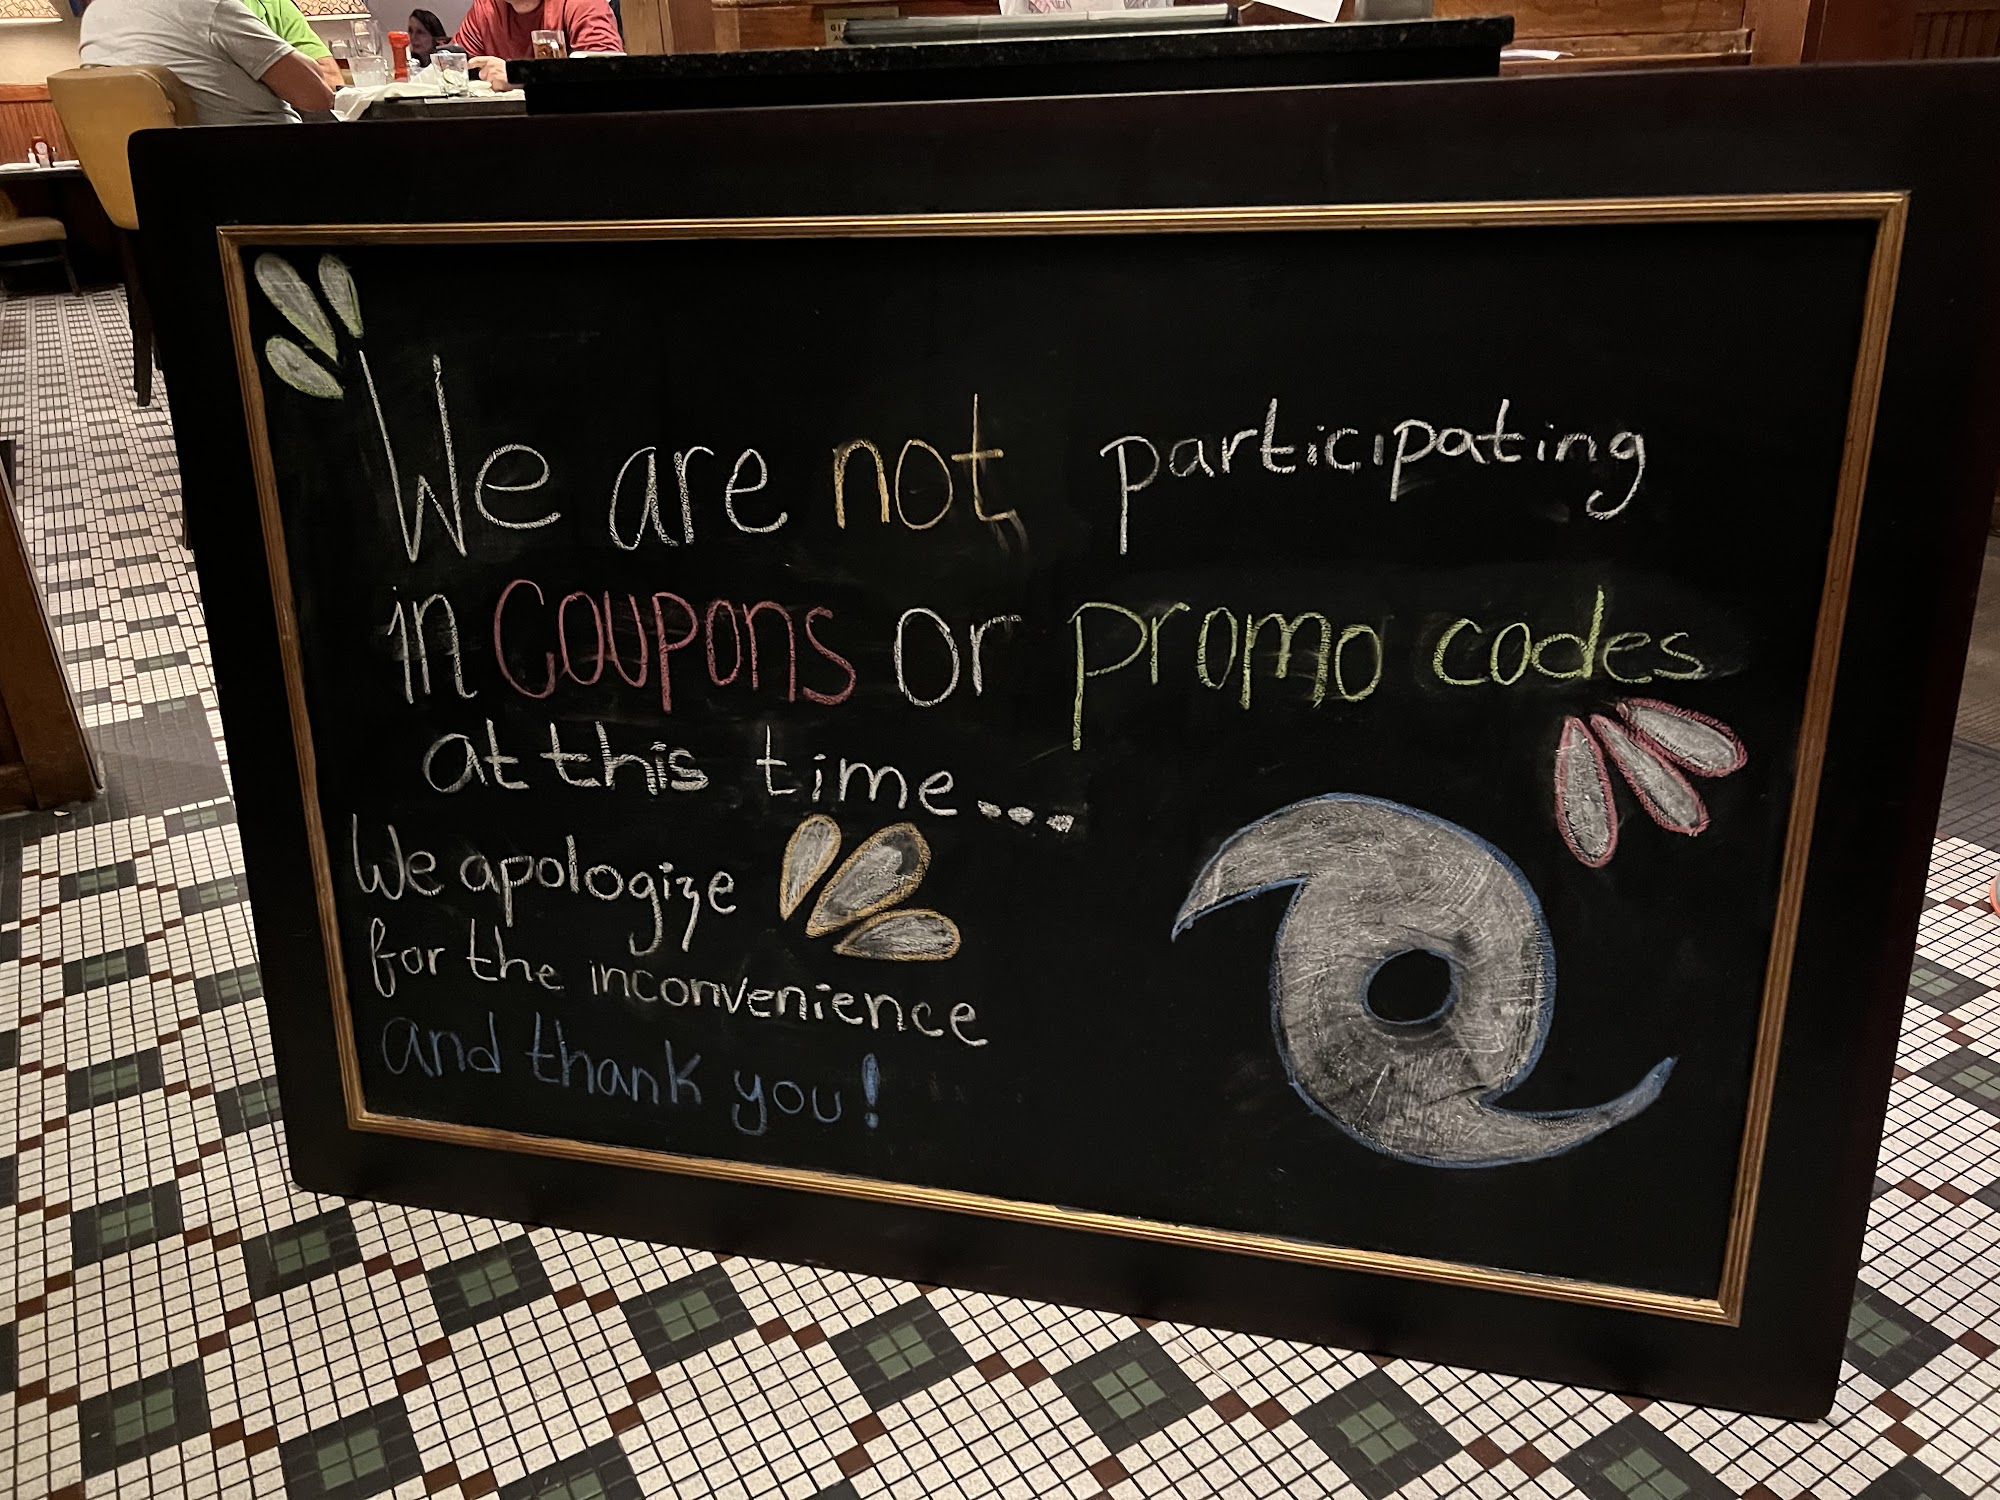 We are not participating
in Coupons or promo codes
at this time...
We apologize
for the inconvenience
and thank you!